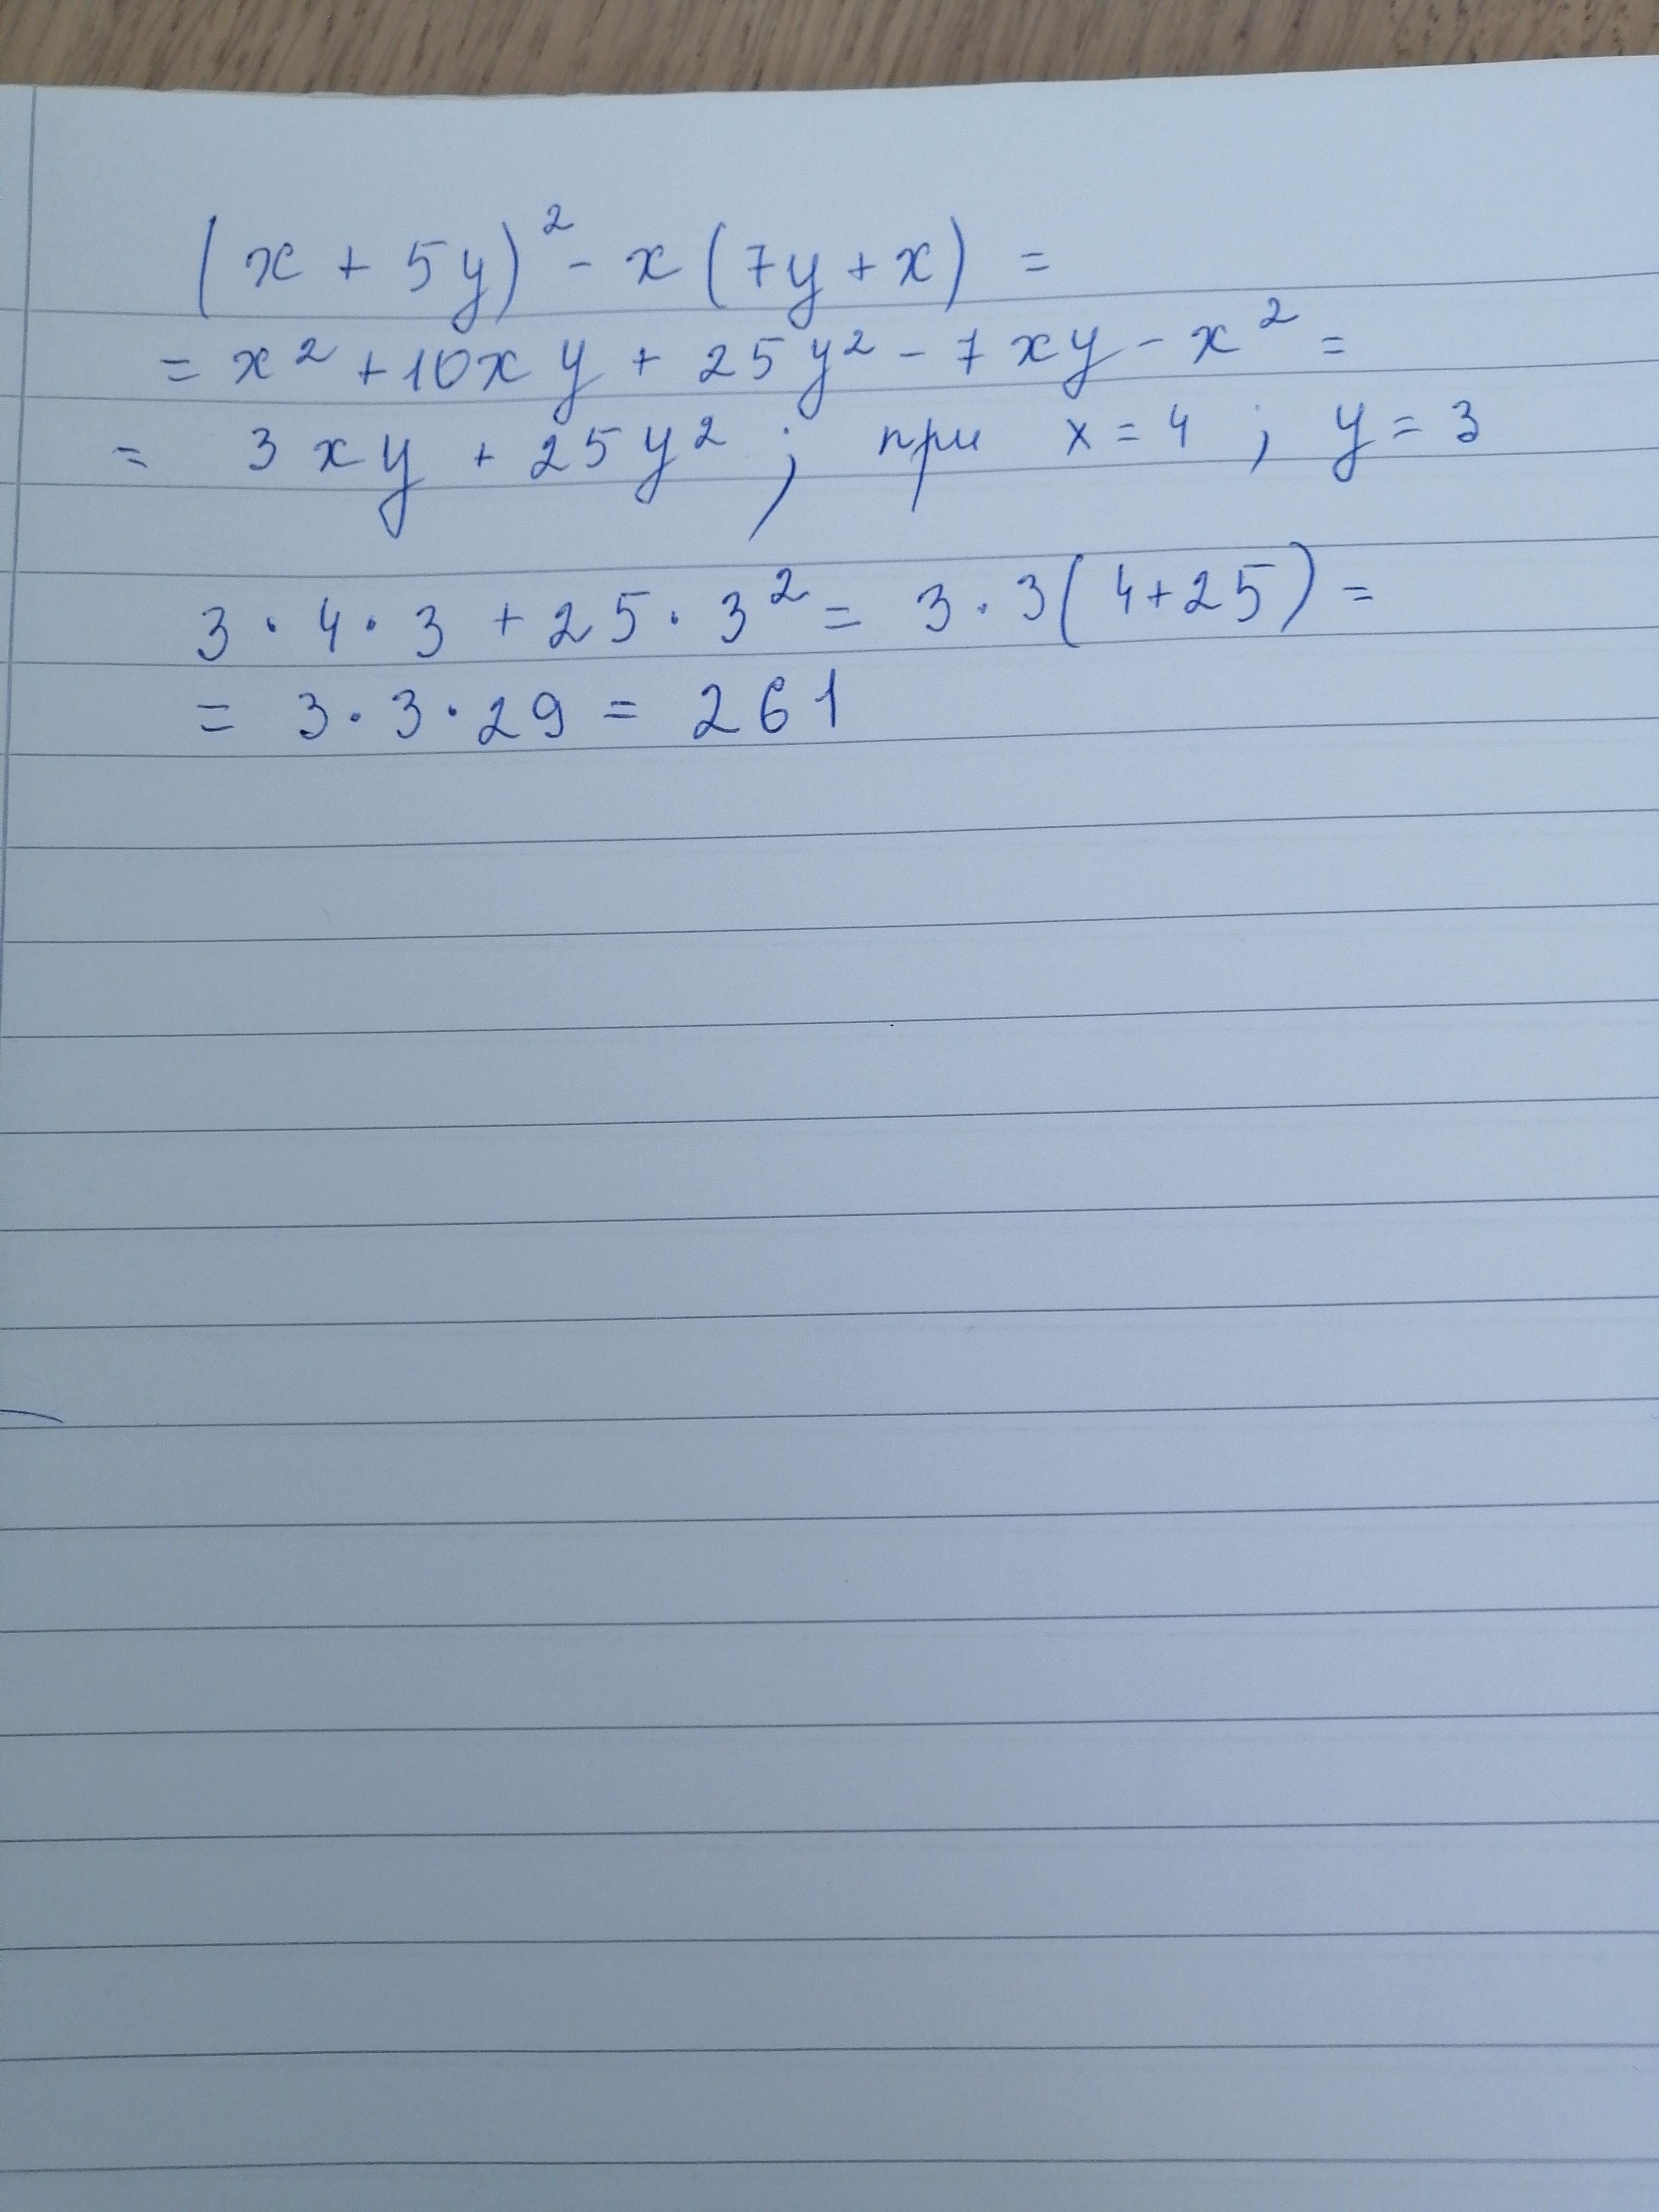 (x + 5y)² - x(7y + x) =
= x² + 10xy + 25y² - 7xy - x² =
= 3xy + 25y² ; при x = 4 ; y = 3
3 · 4 · 3 + 25 · 3² = 3 · 3(4+25) =
= 3 · 3 · 29 = 261